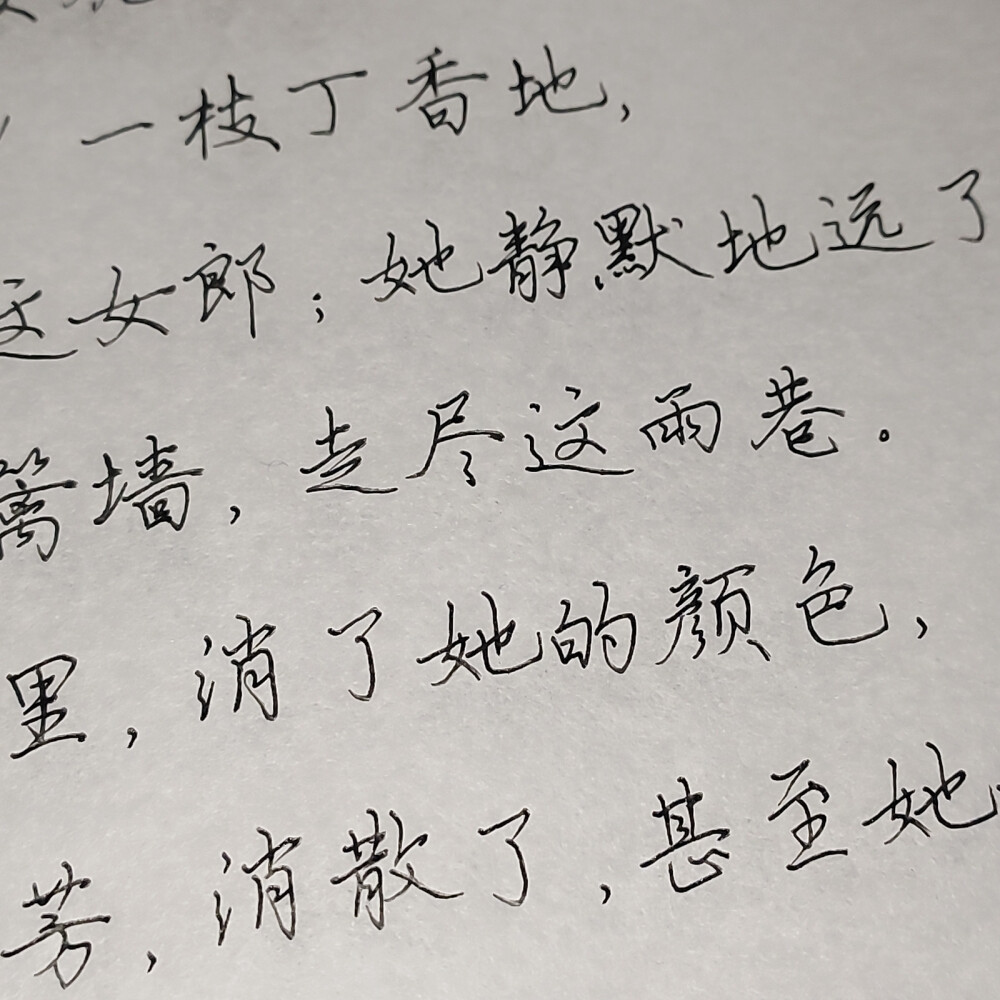 一枝丁香地，
这女郎；她静默地远了
篱墙，走尽这雨巷。
里，消了她的颜色，
芳，消散了，甚至她